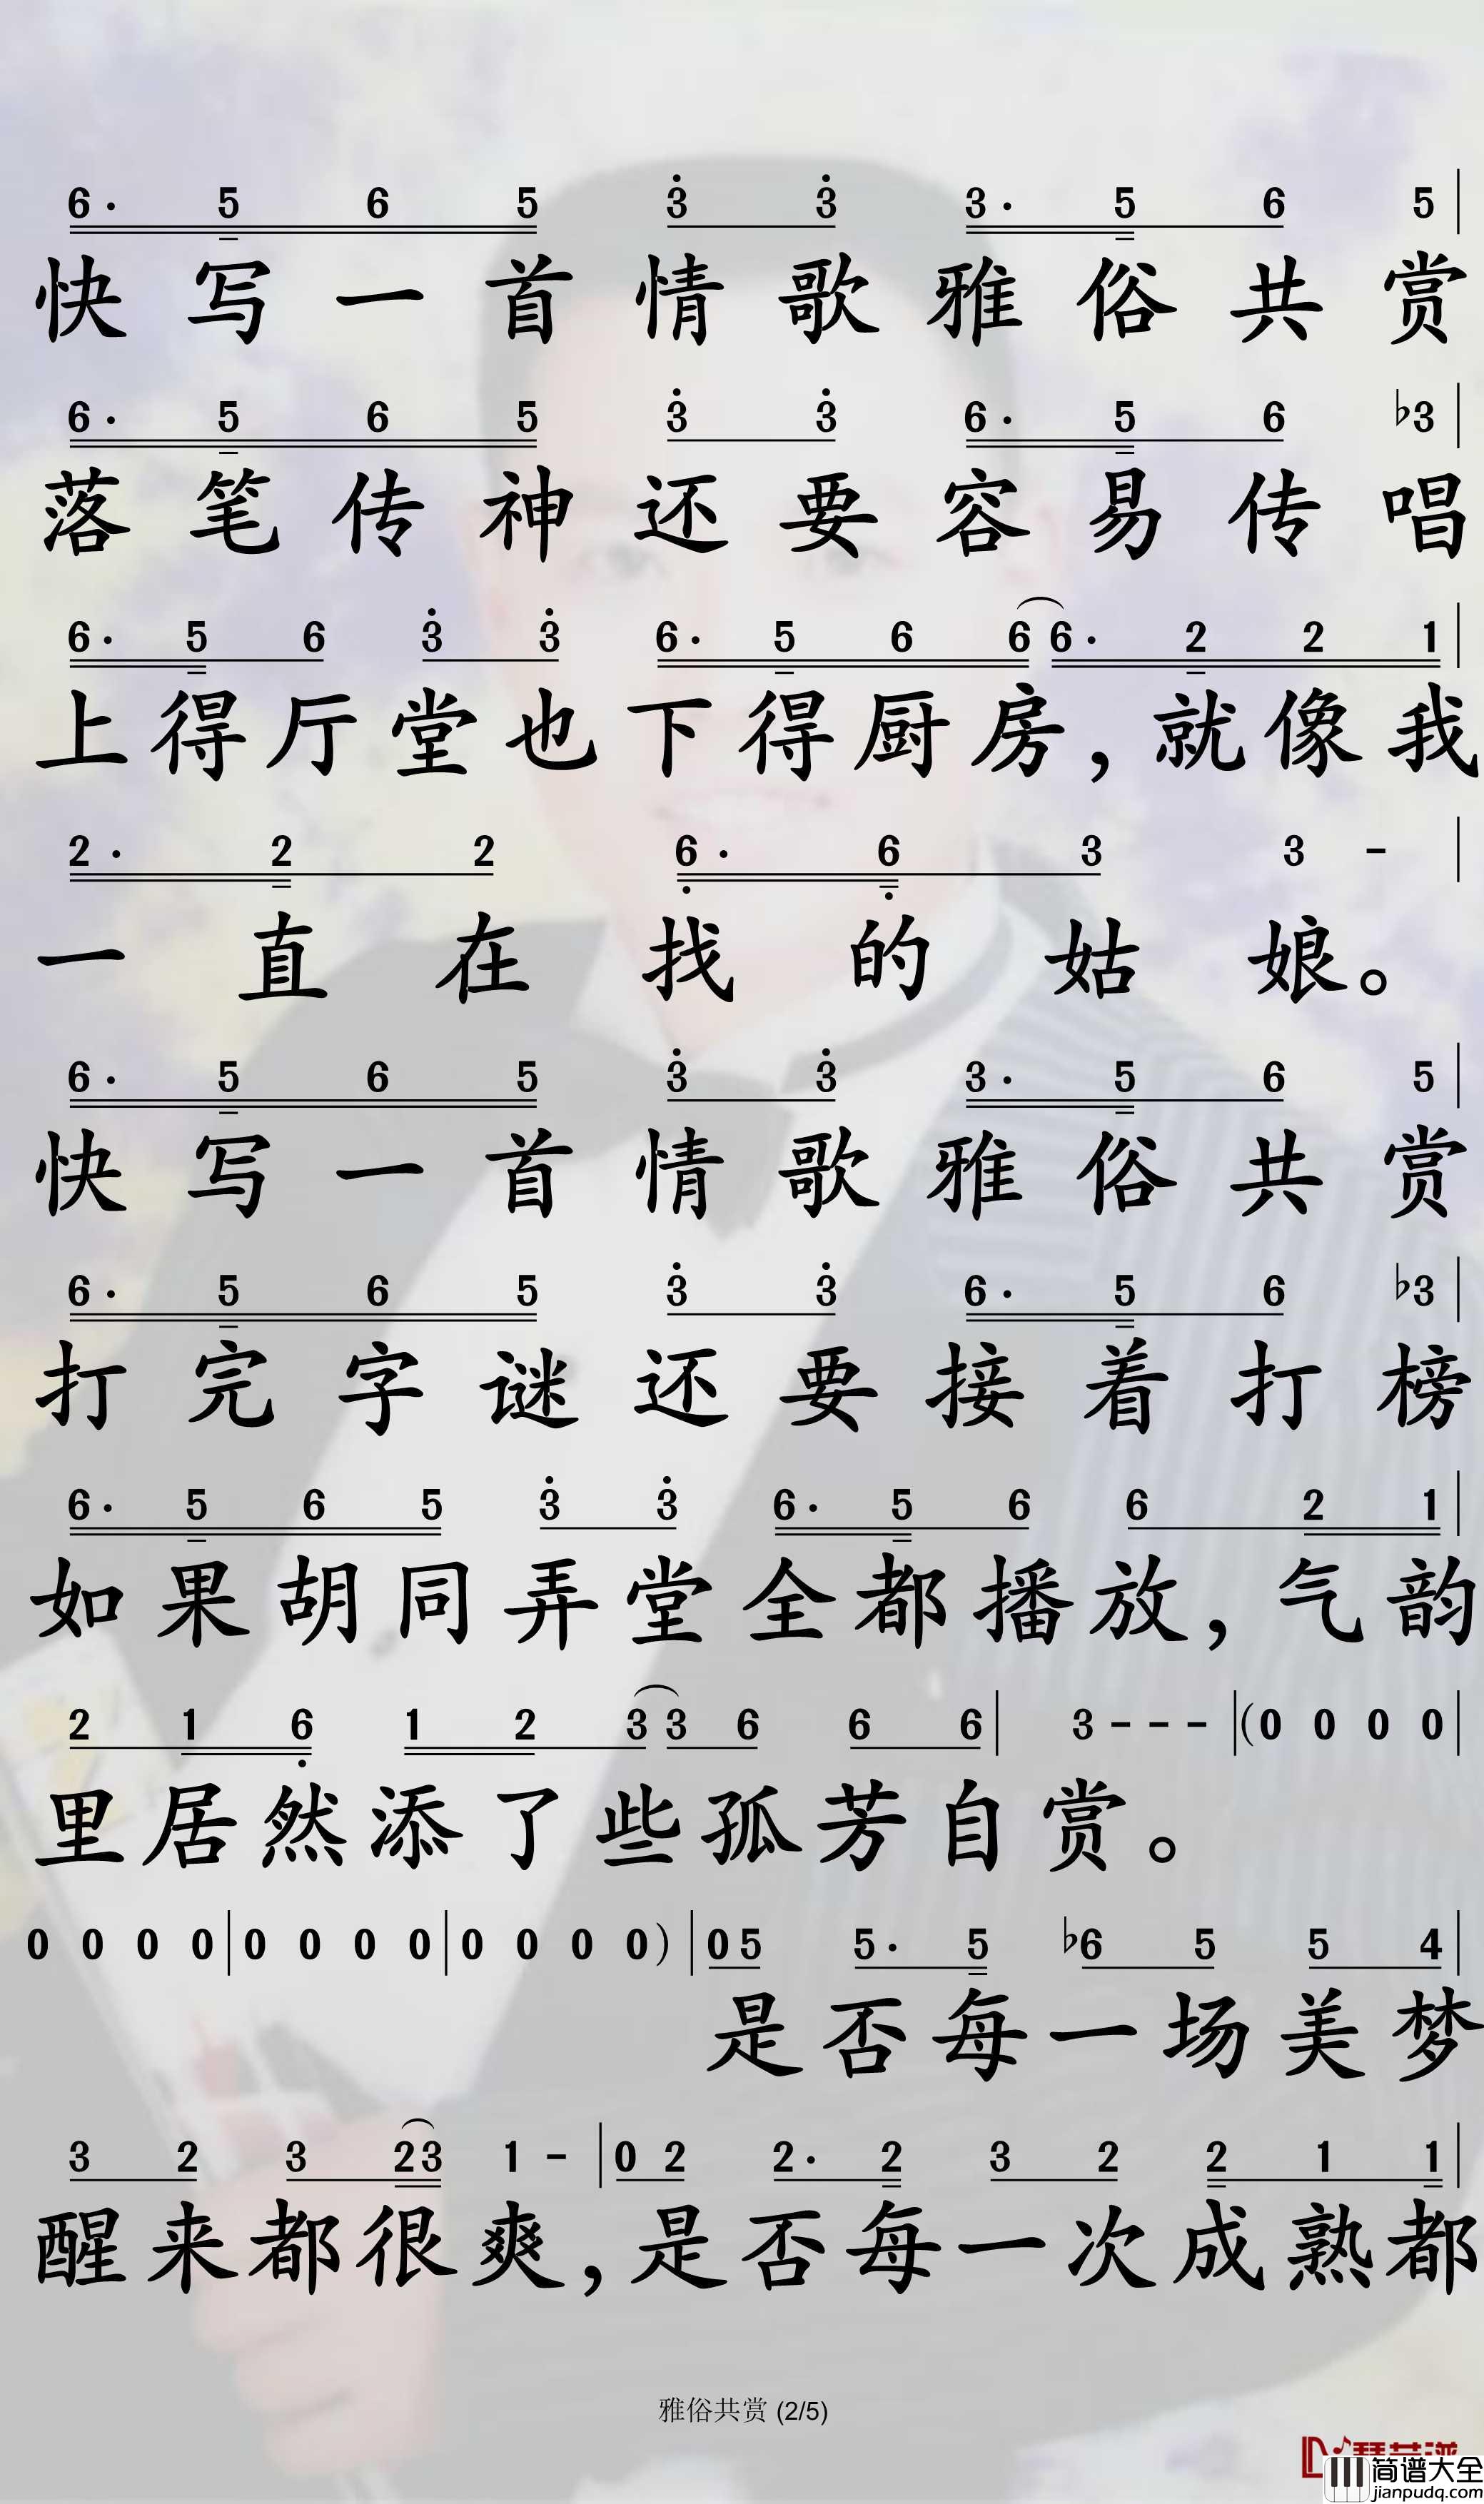 6· 5 6 5 3 3 3· 5 6 5 |
快写一首情歌雅俗共赏
6· 5 6 5 3 3 6· 5 6 ♭3 |
落笔传神还要容易传唱
6· 5 6 3 3 6· 5 6 6 6· 2 2 1 |
上得厅堂也下得厨房，就像我
2· 2 2 6· 6 3 3 - |
一直在找的姑娘。
6· 5 6 5 3 3 3· 5 6 5 |
快写一首情歌雅俗共赏
6· 5 6 5 3 3 6· 5 6 ♭3 |
打完字谜还要接着打榜
6· 5 6 5 3 3 6· 5 6 6 2 1 |
如果胡同弄堂全都播放，气韵
2 1 6 1 2 3 3 6 6 6 | 3 - - - | (0 0 0 0 |
里居然添了些孤芳自赏。
0 0 0 0 | 0 0 0 0 | 0 0 0 0) | 0 5 5· 5 ♭6 5 5 4 |
是否每一场美梦
3 2 3 2 3 1 - | 0 2 2· 2 3 2 2 1 1 |
醒来都很爽，是否每一次成熟都
雅俗共赏 (2/5)
简谱大全
jianpudq.com